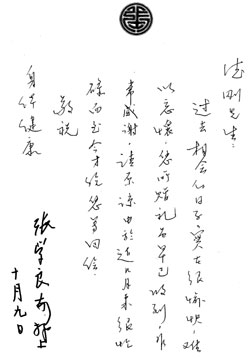 刚先生：
过去相会的日子，实在很愉快，难
以忘怀，您所赠礼品早已收到，非
常感谢，请原谅由于近几月来很忙
碌而至今才给您写回信。
敬祝
身体健康
张学良
十月九日